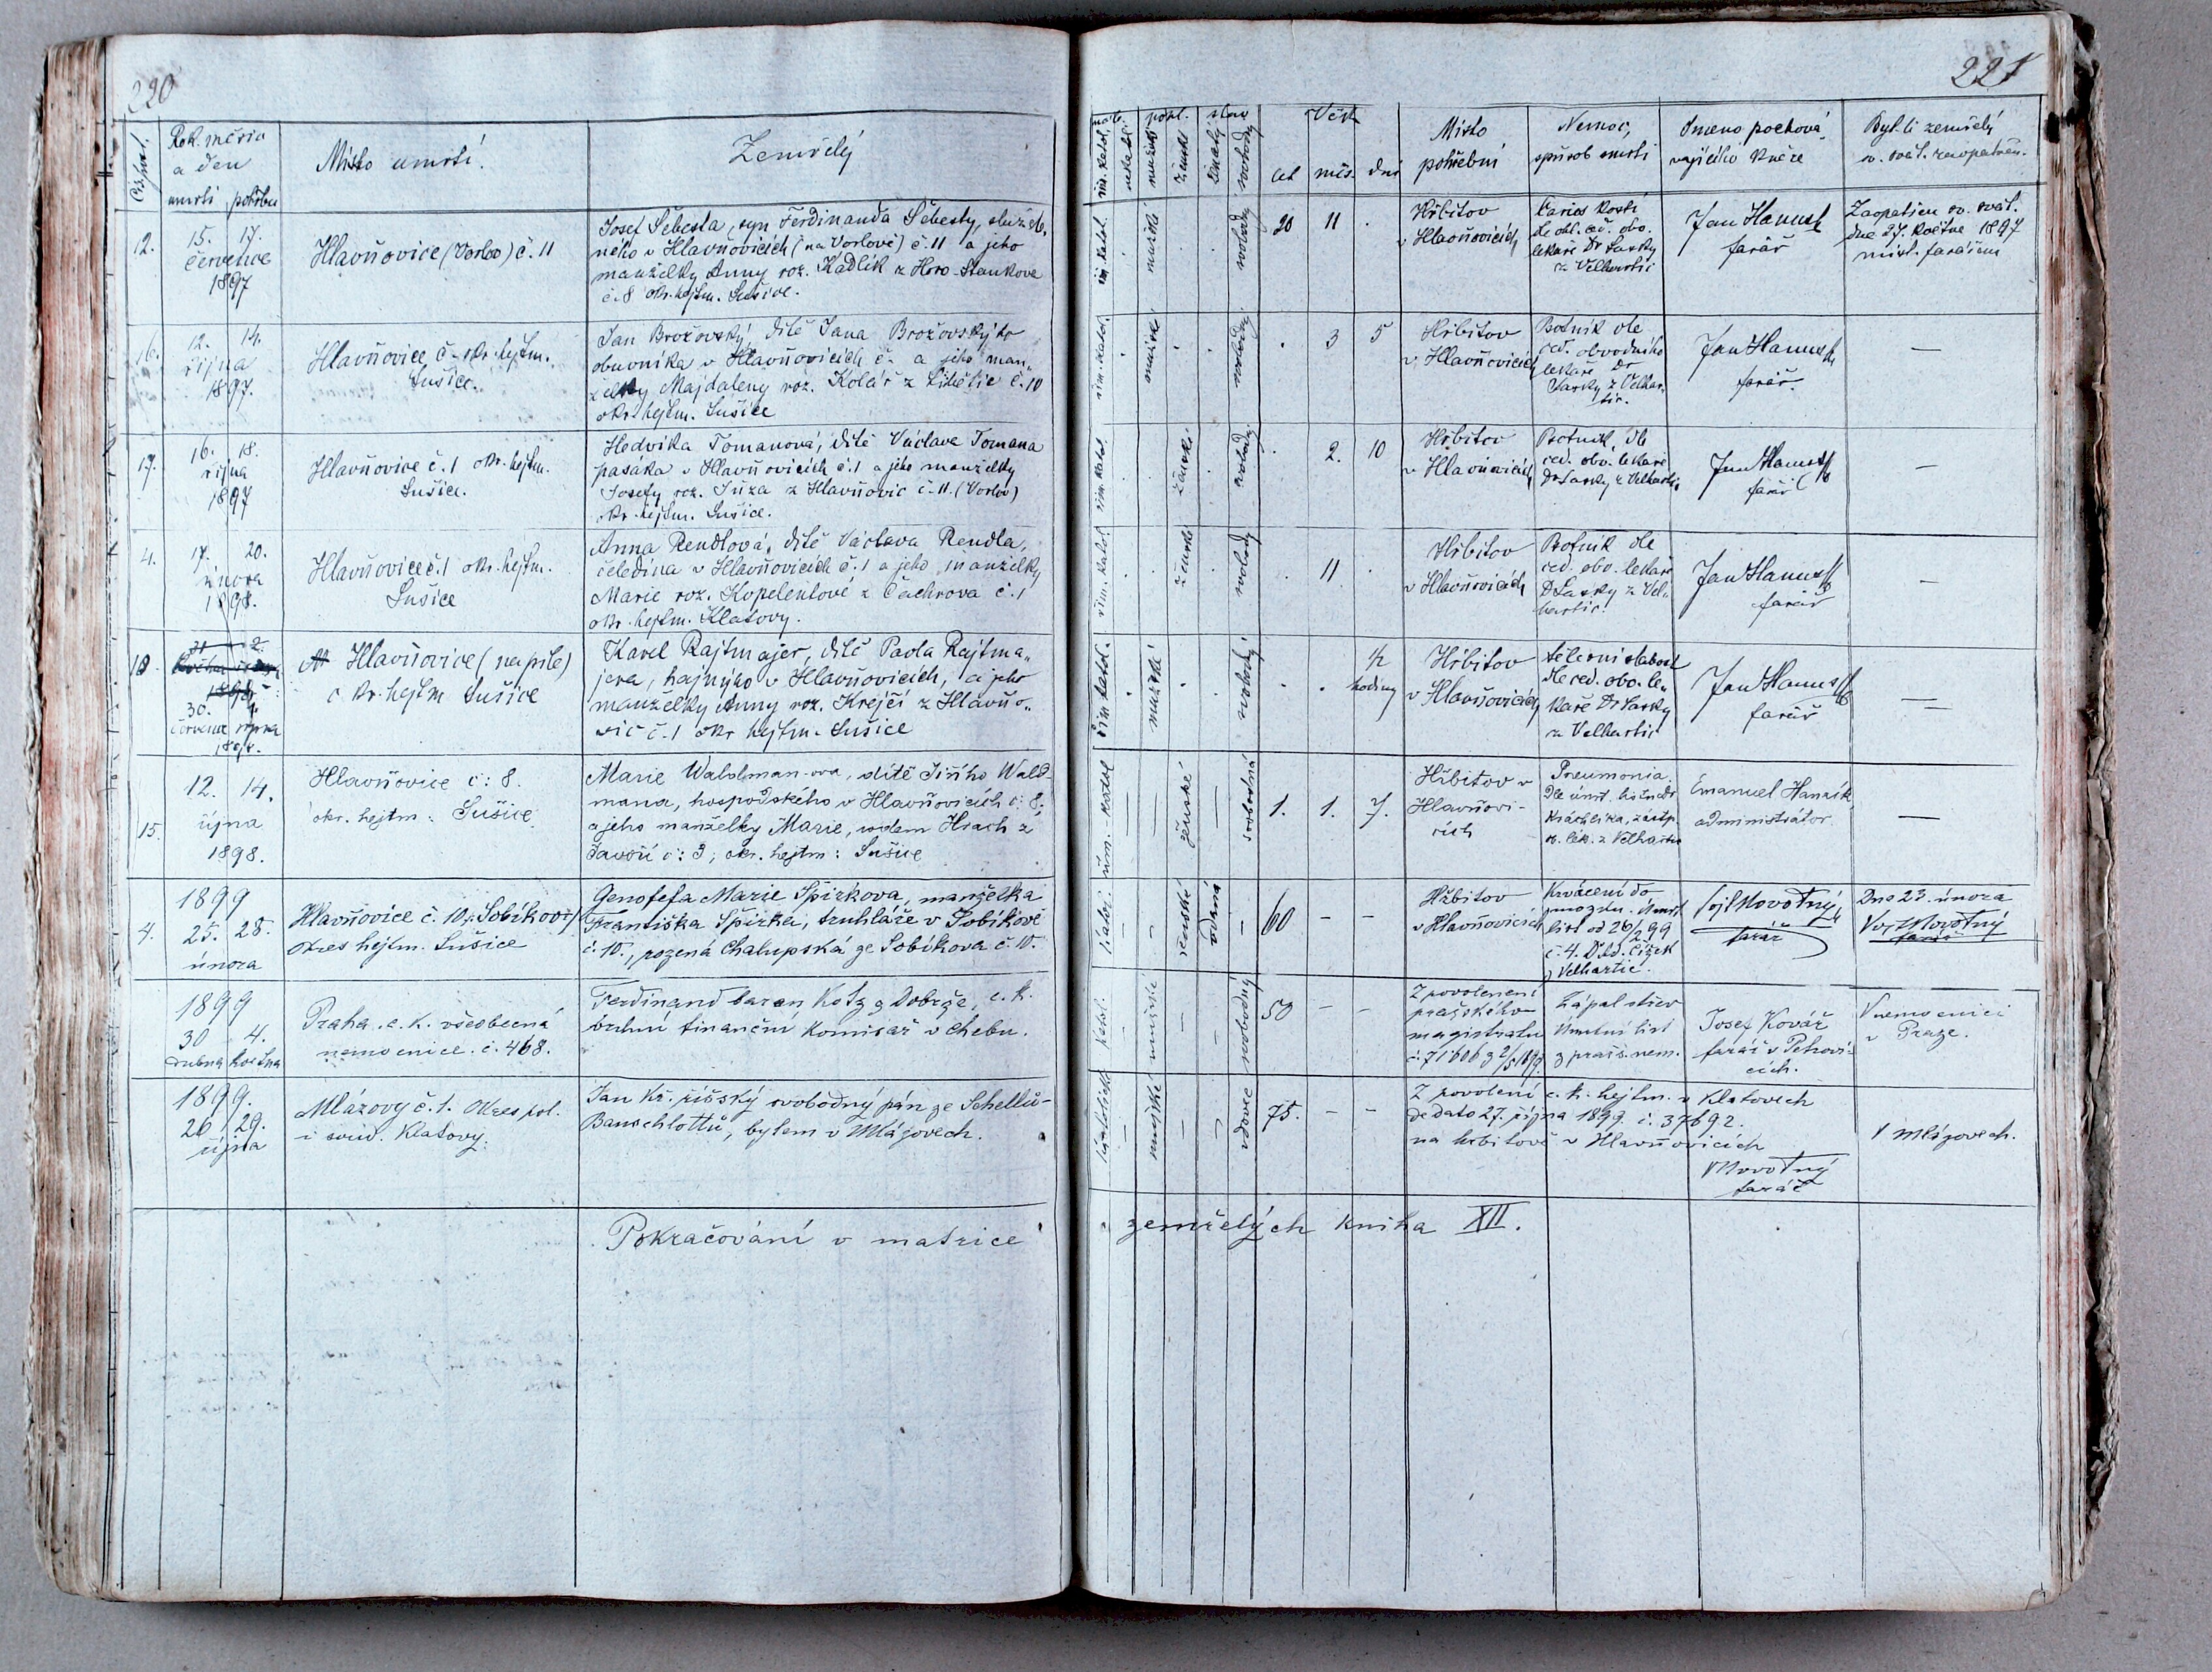 220
Rok. měsíc
a den
úmrtí pohřbu
Místo úmrtí.
Zemřelý
12.
15. 17.
července
1897
Hlavňovice (Vorlov) č. 11
Josef Šebesta, syn Ferdinanda Šebesty, služeb-
ného v Hlavňovicích (na Vorlově) č. 11 a jeho
manželky Anny roz. Kadlik z Horo-Staňkova
č. 8 okr. hejtm. Sušice.
16.
12. 14.
října
1897.
Hlavňovice č - okr. hejtm.
Sušice.
Jan Brožovský, dítě Jana Brožovskýho
obuvníka v Hlavňovicích č. a jeho man„
želky Majdaleny roz. Kolář z Libělic č. 10
okr. hejtm. Sušice
17.
16. 18.
října
1897
Hlavňovice č. 1 okr. hejtm.
Sušice.
Hedvika Tomanová, dítě Václava Tomana
pasáka v Hlavňovicích č. 1 a jeho manželky
Josefy roz. z Hlavňovic č. 11. (Vorlov)
okr. hejtm. Sušice.
4.
17. 20.
února
1898.
Hlavňovice č. 1 okr. hejtm.
Sušice
Anna Rendlová, dítě Václava Rendla,
čeledína v Hlavňovicích č. 1 a jeho manželky
Marie roz. Kopelentové z Čachrova č. 1
okr. hejtm. Klatovy.
10.
31 2.
30. 1.
července srpna
1898.
Hlavňovice (na pile)
okr. hejtm Sušice
Karel Rajtmajer, dítě Pavla Rajtma„
jera, hajnýho v Hlavňovicích, a jeho
manželky Anny roz. Krejčí z Hlavňo„
vic č. 1 okr hejtm. Sušice
15.
12. 14.
října
1898.
Hlavňovice č: 8.
okr. hejtm: Sušice
Marie Waldman-ova, dítě Jiřího Wald-
mana, hospodského v Hlavňovicích č: 8.
a jeho manželky Marie, rodem Hrach z
Javoří č: 3, okr. hejtm: Sušice
4.
1899
25. 28.
února
Hlavňovice č. 10 (Sobíkov)
okres hejtm. Sušice
Genofefa Marie Špirkova, manželka
Františka Špirka, truhláře v Sobíkově
č. 10., rozená Chalupská ze Sobíkova č. 10.
1899
30 4.
dubna května
Praha. c. k. všeobecná
nemocnice. č. 468.
Ferdinand baron Kotz z Dobrže, c. k.
vrchní finanční komisař v Chebu.
1899.
26 29.
října
Mlázovy č. 1. Okres pol.
i soud. Klatovy.
Jan Kř. říšský svobodný pán ze Schellů-
Bauschlottů, bytem v Mlázovech.
Pokračování v matrice
221
pohl. stav
Věk
let měs. dní
Místo
pohřbení
Nemoc,
spůsob smrti
Jmeno pochová„
vajícího kněze
Byl-li zemřelý
sv. svát. zaopatřen.
řím. katol. mužské svobodný 20 11 .
Hřbitov
v Hlavňovicích
Caries kosti
dle ohl. ces. obv.
lékaře Dr Lasky
z Velhartic
Jan Hanuš
farář
Zaopatřen sv. svát.
dne 27. května 1897
míst. farářem
řím. katol. mužské svobodný . 3 5
Hřbitov
v Hlavňovicích
Psotník dle
ced. obvodního
lékaře Dr
Lasky z Velhar„
tic.
Jan Hanuš
farář.
—
řím. katol. ženské svobodný . 2. 10
Hřbitov
v Hlavňovicích
Psotník, dle
ced. obv. lékaře
Dr Lasky z Velhartic
Jan Hanuš
farář
—
řím. katol. ženské svobodný . 11 .
Hřbitov
v Hlavňovicích
Psotník dle
ced. obv. lékaře
Dr Lasky z Vel„
hartic
Jan Hanuš
farář
—
řím. katol. mužské svobodný . . ½ hodiny
Hřbitov
v Hlavňovicích
tělesní slabost
dle ced. obv. lé„
kaře Dr Lasky
z Velhartic
Jan Hanuš
farář
—
řím. - katol ženské svobodná 1. 1. 7.
Hřbitov v
Hlavňovi-
cích
Pneumonia.
Dle úmrt. listu Dr
Králíka, zástp.
o. lék. z Velhartic
Emanuel Hanzík
administrátor
—
katol: ženské vdaná — 60 — —
Hřbitov
v Hlavňovicích
Krvácení do
mozku. Úmrt.
list od 26/2 99
č. 4. Čížek
z Velhartic.
Vojt Novotný
farář
Dne 23. února
Voj Novotný
farář
katol: mužské — svobodný 50 — —
Z povolenení
pražského
magistrátu
č. 71606 z 2/5 1899
Zápal střev
Úmrtní list
z praž. nem.
Josef Kovář
farář v Petrovi-
cích.
V nemocnici
v Praze.
katolické mužské — vdovec 75. — —
Z povolení c. k. hejtm. v Klatovech
de dato 27. října 1899. č. 37692.
na hřbitově v Hlavňovicích
VNovotný
farář
V Mlázovech.
zemřelých kniha XII.